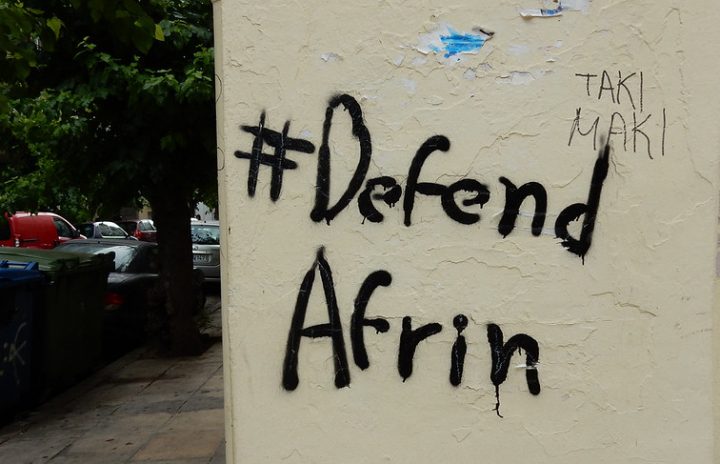 TAKI
MAKI
#Defend
Afrin